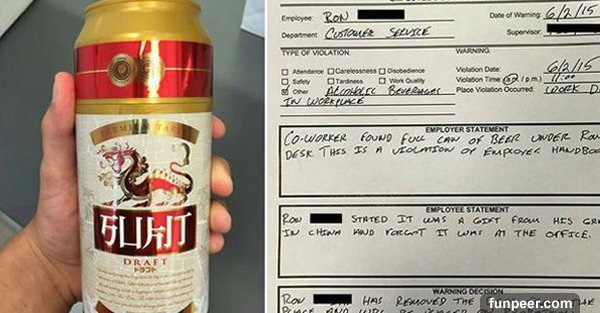 PREMIUM TAST
SUKIT
DRAFT
ドラフト
Employee: RON
Date of Warning: 6/2/15
Department: CUSTOMER SERVICE
Supervisor:
TYPE OF VIOLATION:
WARNING:
Attendance Carelessness Disobedience
Safety Tardiness Work Quality
Other ALCOHOLIC BEVERAGES
IN WORKPLACE
Violation Date: 6/2/15
Violation Time: (a.m. / p.m.) 11:00
Place Violation Occurred: WORK D
EMPLOYER STATEMENT
CO-WORKER FOUND FULL CAN OF BEER UNDER RON
DESK. THIS IS A VIOLATION OF EMPLOYEE HANDBOO
EMPLOYEE STATEMENT
RON STATED IT WAS A GIFT FROM HIS GR
IN CHINA AND FORGOT IT WAS AT THE OFFICE.
WARNING DECISION
RON HAS REMOVED THE
funpeer.com